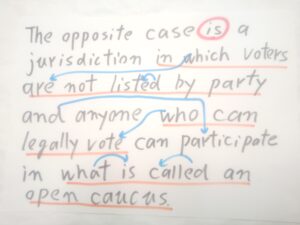 The opposite case is a
jurisdiction in which voters
are not listed by party
and anyone who can
legally vote can participate
in what is called an
open caucus.